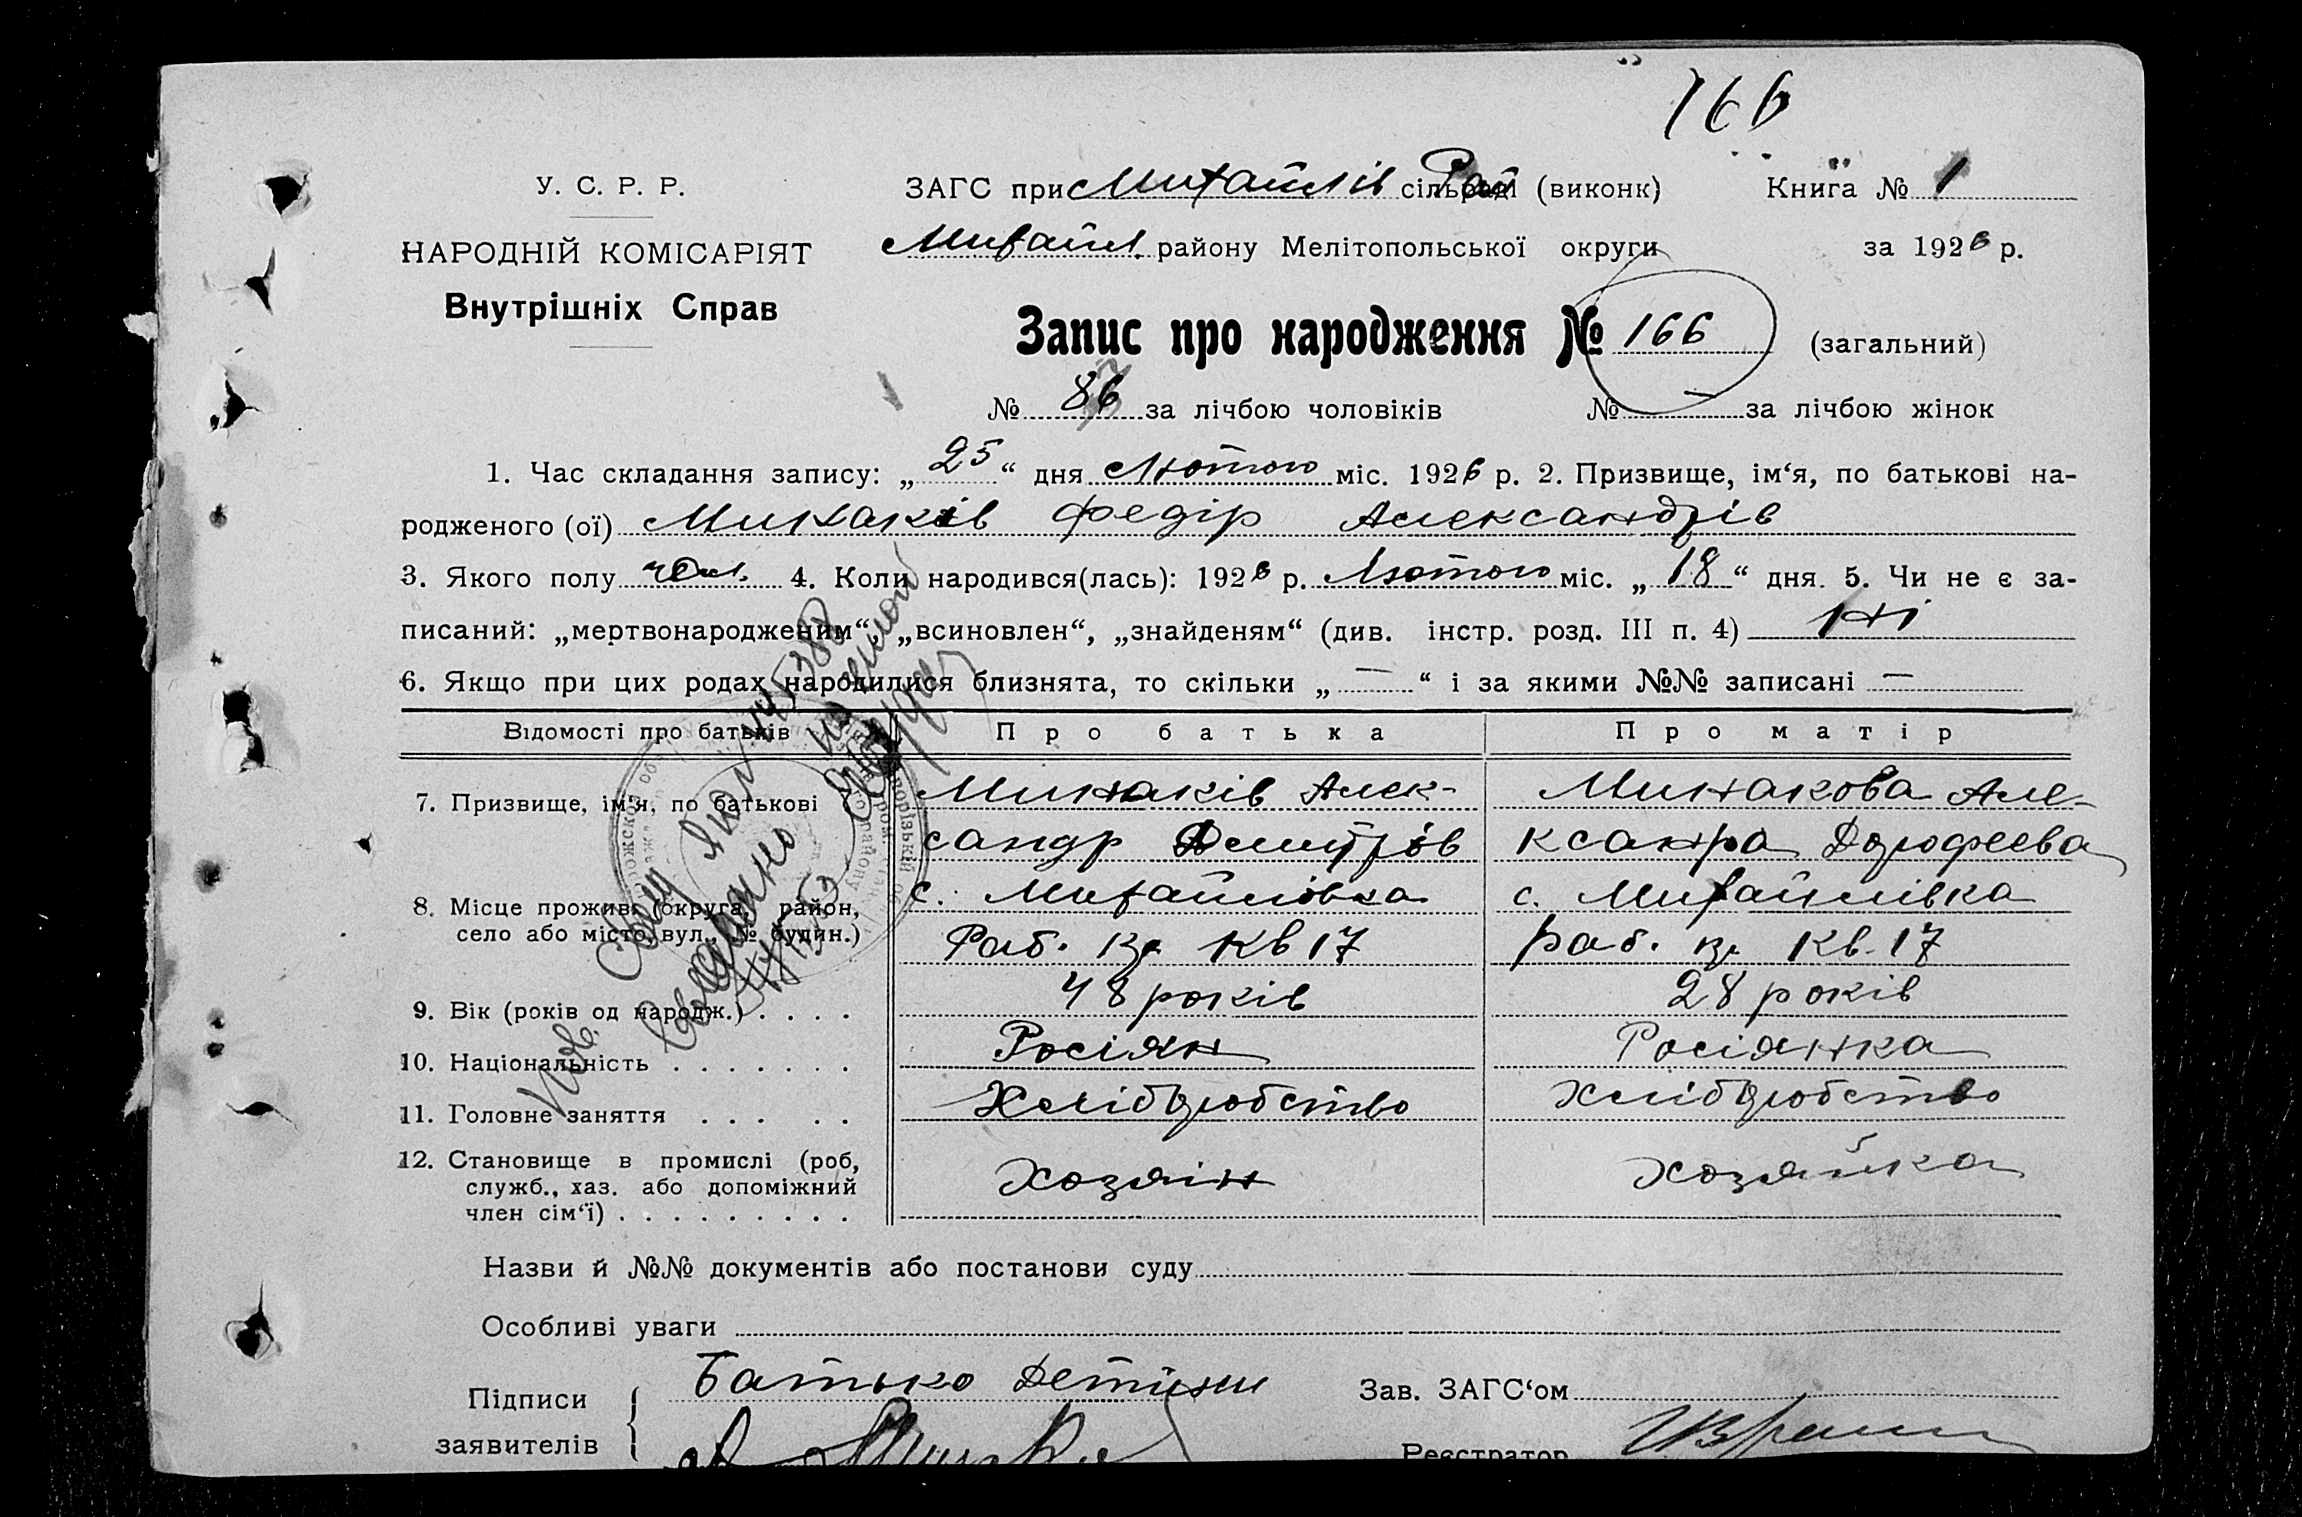 166
У. С. Р. Р.
ЗАГС при Михайлів сільраді (виконк) Книга № 1
НАРОДНІЙ КОМІСАРІЯТ
Михайл. району Мелітопольської округи за 1926 р.
Внутрішніх Справ
Запис про народження № 166 (загальний)
№ 86 за лічбою чоловіків № — за лічбою жінок
1. Час складання запису: „25“ дня Лютого міс. 1926 р. 2. Призвище, ім‘я, по батькові на-
родженого (ої) Минаків Федір Александрів
3. Якого полу чол. 4. Коли народився(лась): 1926 р. Лютого міс. „18“ дня. 5. Чи не є за-
писаний: „мертвонародженим“, „всиновлен“, „знайденям“ (див. інстр. розд. III п. 4) Ні
6. Якщо при цих родах народилися близнята, то скільки „—“ і за якими №№ записані —
Відомості про батьків Про батька Про матір
7. Призвище, ім‘я, по батькові Минаків Алек- Минакова Але-
сандр Дмитрів ксандра Дорофеева
8. Місце прожив. (округа, район, с. Михайлівка с. Михайлівка
село або місто, вул., № будин.) Раб. Кв 17 Раб. Кв. 17
9. Вік (років од народж.) . . . . 48 років 28 років
10. Національність . . . . . . . Росіян Росіянка
11. Головне заняття . . . . . Хліборобство Хліборобство
12. Становище в промислі (роб, Хозяін Хозяйка
служб., хаз. або допоміжний
член сім‘ї) . . . . . . . . .
Назви й №№ документів або постанови суду
Особливі уваги
Підписи Батько Детини Зав. ЗАГС‘ом
заявителів Реєстратор